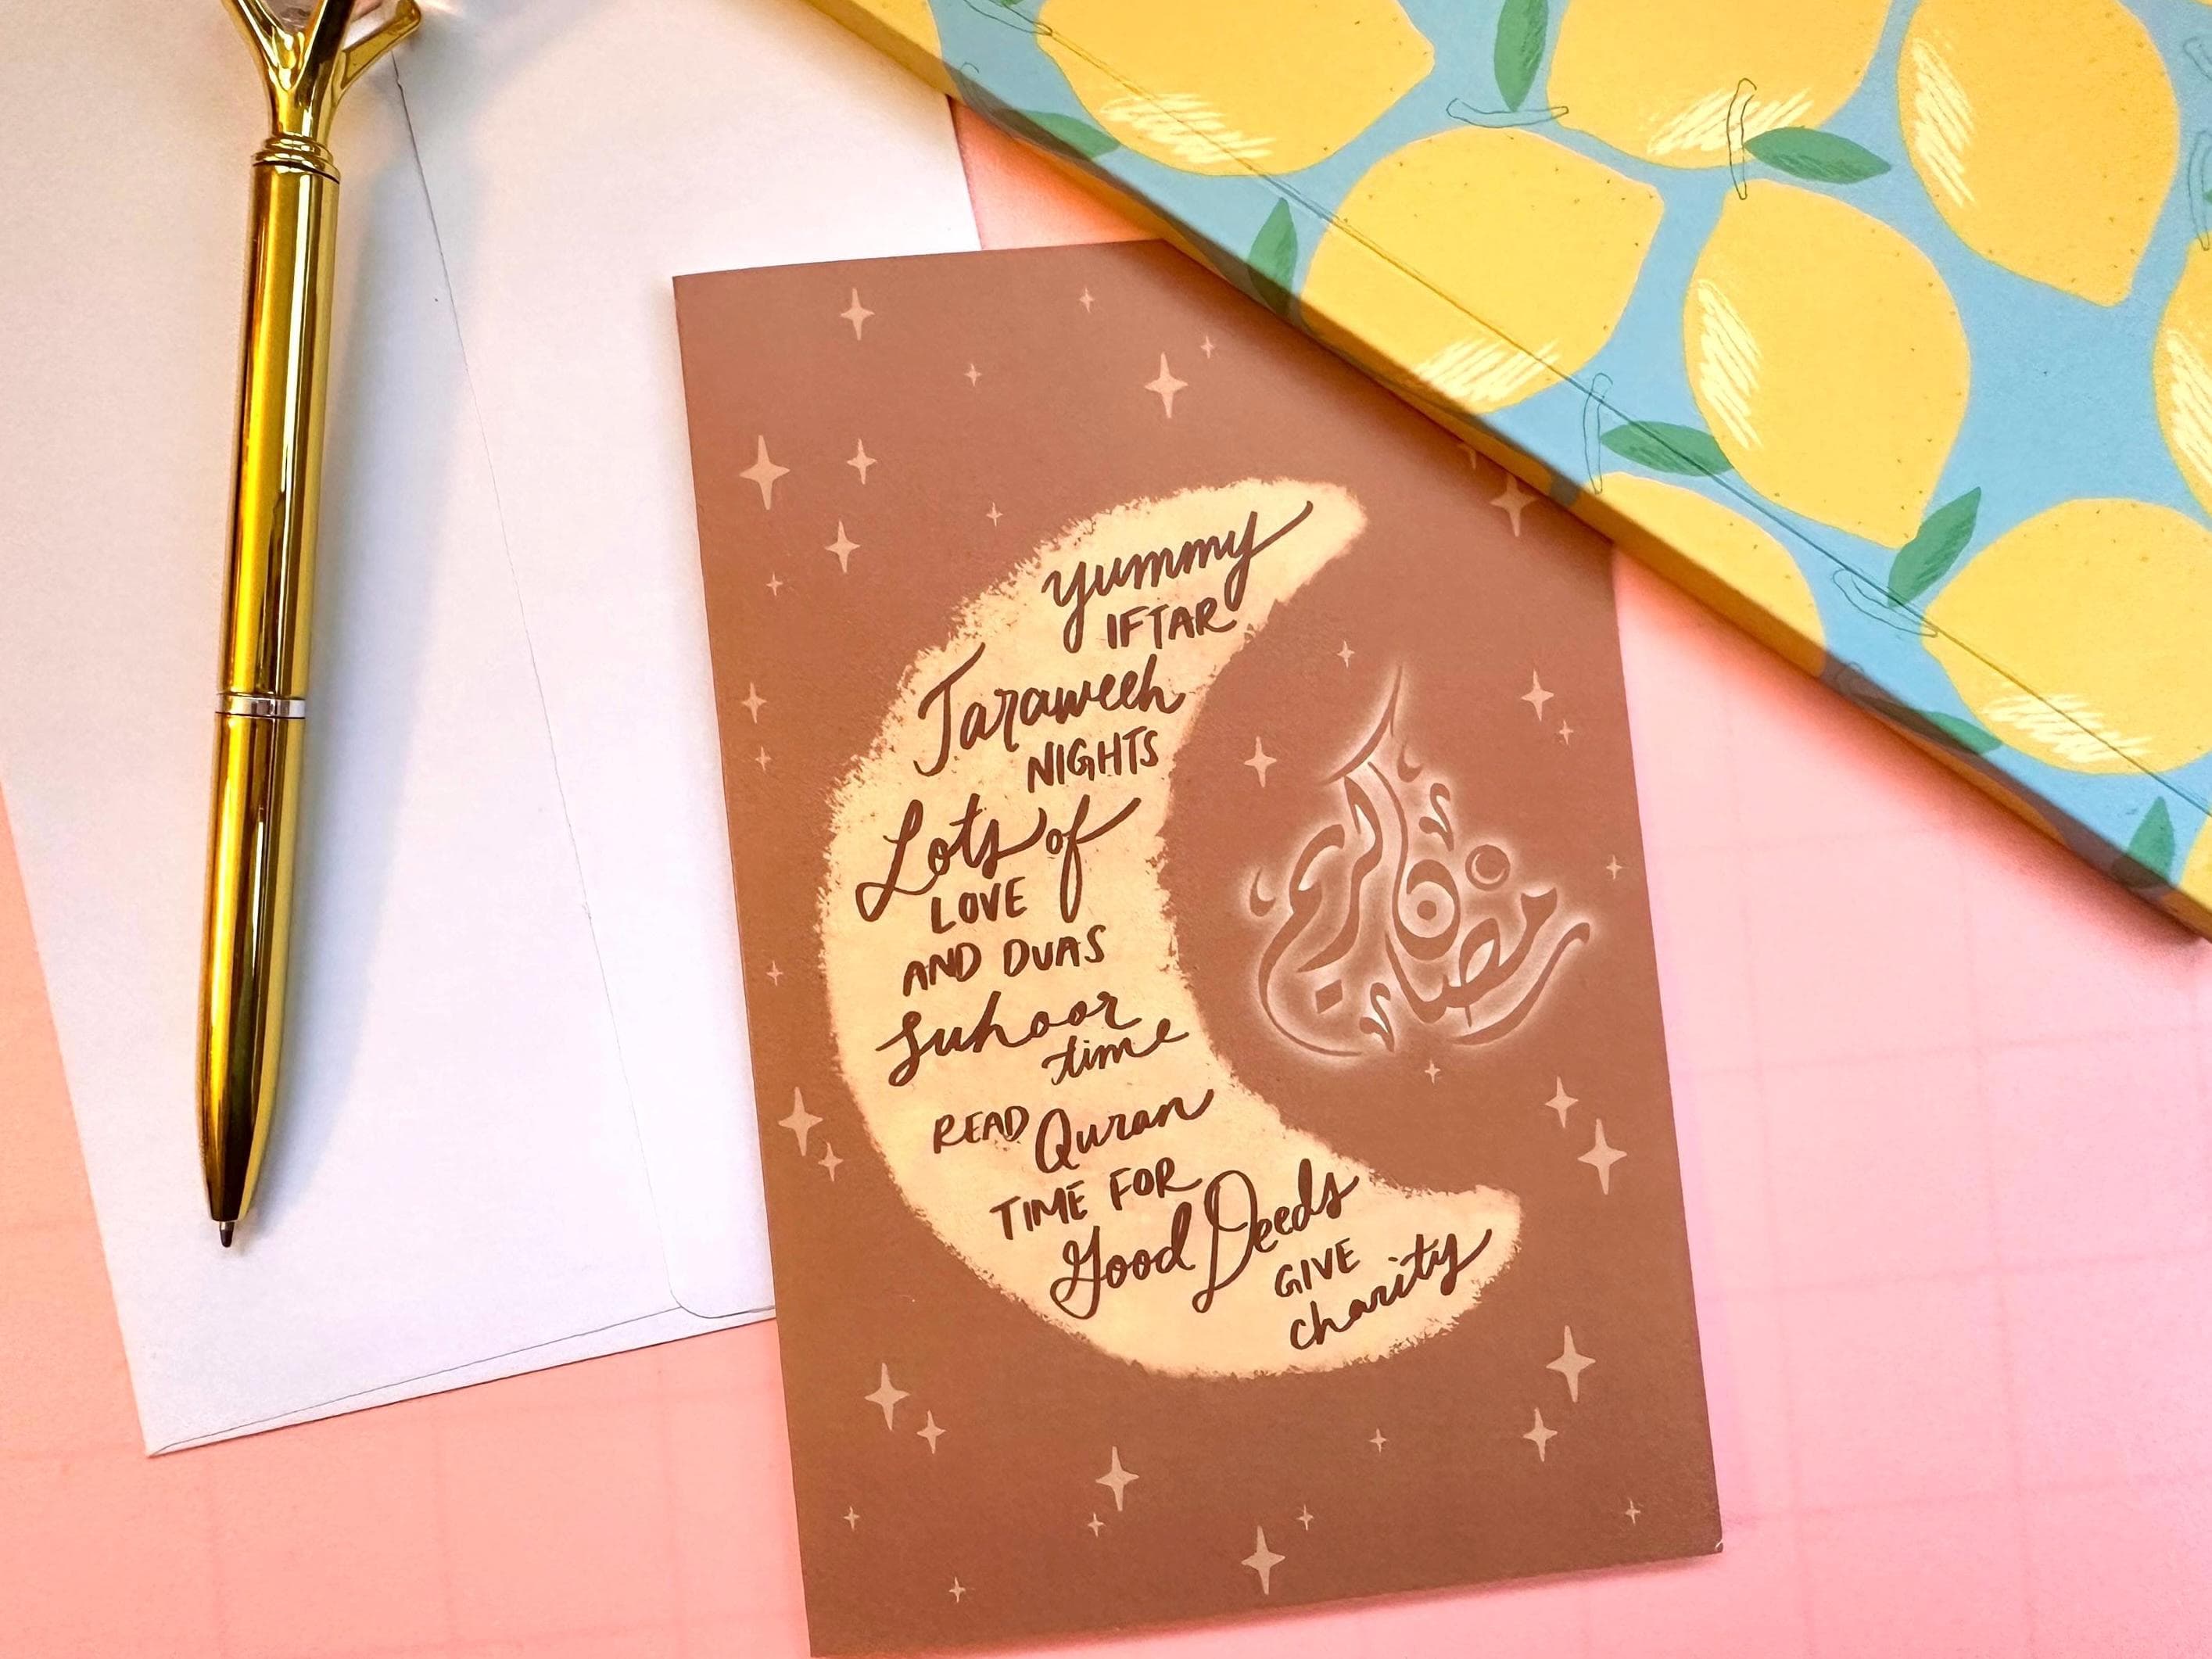 yummy
IFTAR
Taraweeh
NIGHTS
Lots of
LOVE
AND DUAS
suhoor
time
READ Quran
TIME FOR
Good Deeds
GIVE
charity
رمضان كريم